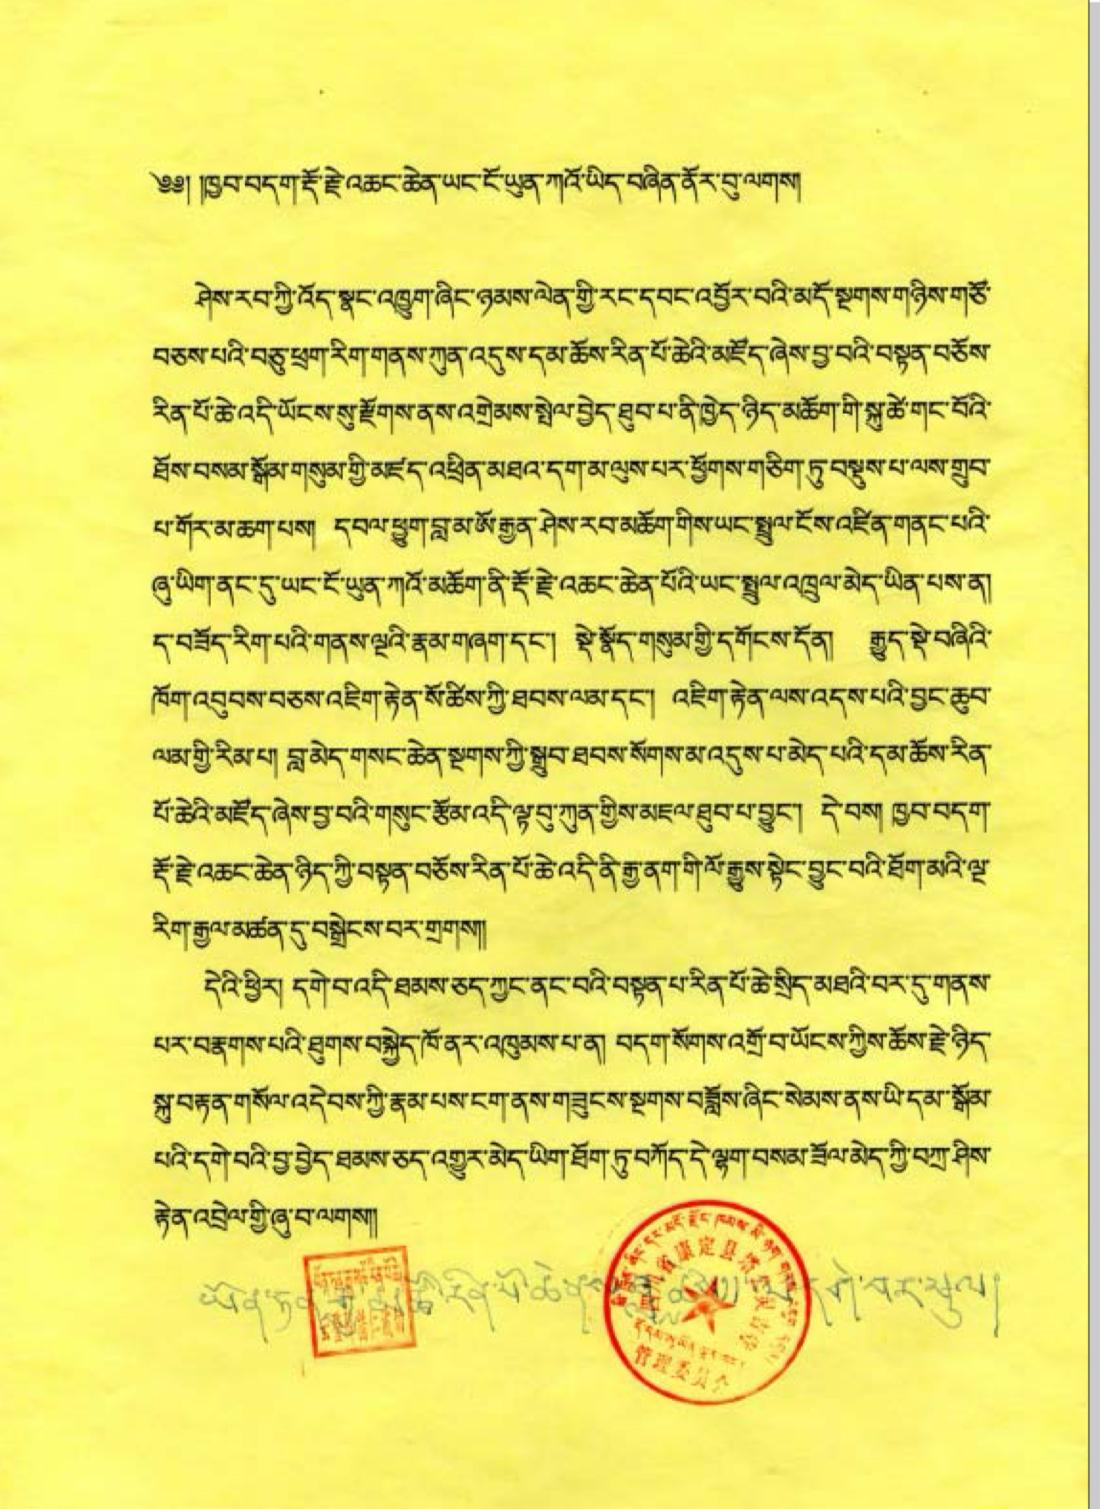 ༄༅། །ཁྱབ་བདག་རྡོ་རྗེ་འཆང་ཆེན་ཡང་ངོ་ཡུན་ཀའོ་ཡིད་བཞིན་ནོར་བུ་ལགས།
ཤེས་རབ་ཀྱི་འོད་སྣང་འཁྱུག་ཞིང་ཉམས་ལེན་གྱི་རང་དབང་འབྱོར་བའི་མདོ་སྔགས་གཉིས་གཙོ་
བཅས་པའི་བཅུ་ཕྲག་རིག་གནས་ཀུན་འདུས་དམ་ཆོས་རིན་པོ་ཆེའི་མཛོད་ཞེས་བྱ་བའི་བསྟན་བཅོས་
རིན་པོ་ཆེ་འདི་ཡོངས་སུ་རྫོགས་ནས་འགྲེམས་སྤེལ་བྱེད་ཐུབ་པ་ནི་ཁྱེད་ཉིད་མཆོག་གི་སྐུ་ཚེ་གང་བོའི་
ཐོས་བསམ་སྒོམ་གསུམ་གྱི་མཛད་འཕྲིན་མཐའ་དག་མ་ལུས་པར་ཕྱོགས་གཅིག་ཏུ་བསྡུས་པ་ལས་གྲུབ་
པ་གོར་མ་ཆག་པས། དཔལ་ཕྱུག་བླ་མ་ཨོ་རྒྱན་ཤེས་རབ་མཆོག་གིས་ཡང་སྤྲུལ་ངོས་འཛིན་གནང་པའི་
ཞུ་ཡིག་ནང་དུ་ཡང་ངོ་ཡུན་ཀའོ་མཆོག་ནི་རྡོ་རྗེ་འཆང་ཆེན་པོའི་ཡང་སྤྲུལ་འཁྲུལ་མེད་ཡིན་པས་ན།
ད་བཟོད་རིག་པའི་གནས་ལྔའི་རྣམ་གཞག་དང་། སྡེ་སྣོད་གསུམ་གྱི་དགོངས་དོན། རྒྱུད་སྡེ་བཞིའི་
ཁོག་འབུབས་བཅས་འཇིག་རྟེན་སོ་ཚིས་ཀྱི་ཐབས་ལམ་དང་། འཇིག་རྟེན་ལས་འདས་པའི་བྱང་ཆུབ་
ལམ་གྱི་རིམ་པ། བླ་མེད་གསང་ཆེན་སྔགས་ཀྱི་སྒྲུབ་ཐབས་སོགས་མ་འདུས་པ་མེད་པའི་དམ་ཆོས་རིན་
པོ་ཆེའི་མཛོད་ཞེས་བྱ་བའི་གསུང་རྩོམ་འདི་ལྟ་བུ་ཀུན་གྱིས་མཇལ་ཐུབ་པ་བྱུང་། དེ་བས། ཁྱབ་བདག
རྡོ་རྗེ་འཆང་ཆེན་ཉིད་ཀྱི་བསྟན་བཅོས་རིན་པོ་ཆེ་འདི་ནི་རྒྱ་ནག་གི་ལོ་རྒྱུས་སྟེང་བྱུང་བའི་ཐོག་མའི་ལྔ་
རིག་རྒྱལ་མཚན་དུ་བསྒྲེངས་བར་གྲགས།།
དེའི་ཕྱིར། དགེ་བ་འདི་ཐམས་ཅད་ཀྱང་ནང་བའི་བསྟན་པ་རིན་པོ་ཆེ་སྲིད་མཐའི་བར་དུ་གནས་
པར་བརྣགས་པའི་ཐུགས་བསྐྱེད་ཁོ་ནར་འཁུམས་པ་ན། བདག་སོགས་འགྲོ་བ་ཡོངས་ཀྱིས་ཆོས་རྗེ་ཉིད་
སྐུ་བརྟན་གསོལ་འདེབས་ཀྱི་རྣམ་པས་ངག་ནས་གཟུངས་སྔགས་བཟློས་ཞིང་སེམས་ནས་ཡི་དམ་སྒོམ་
པའི་དགེ་བའི་བྱ་བྱེད་ཐམས་ཅད་འགྱུར་མེད་ཡིག་ཐོག་ཏུ་བཀོད་དེ་ལྷག་བསམ་ཟོལ་མེད་ཀྱི་བཀྲ་ཤིས་
རྟེན་འབྲེལ་གྱི་ཞུ་བ་ལགས།།
管理委员会